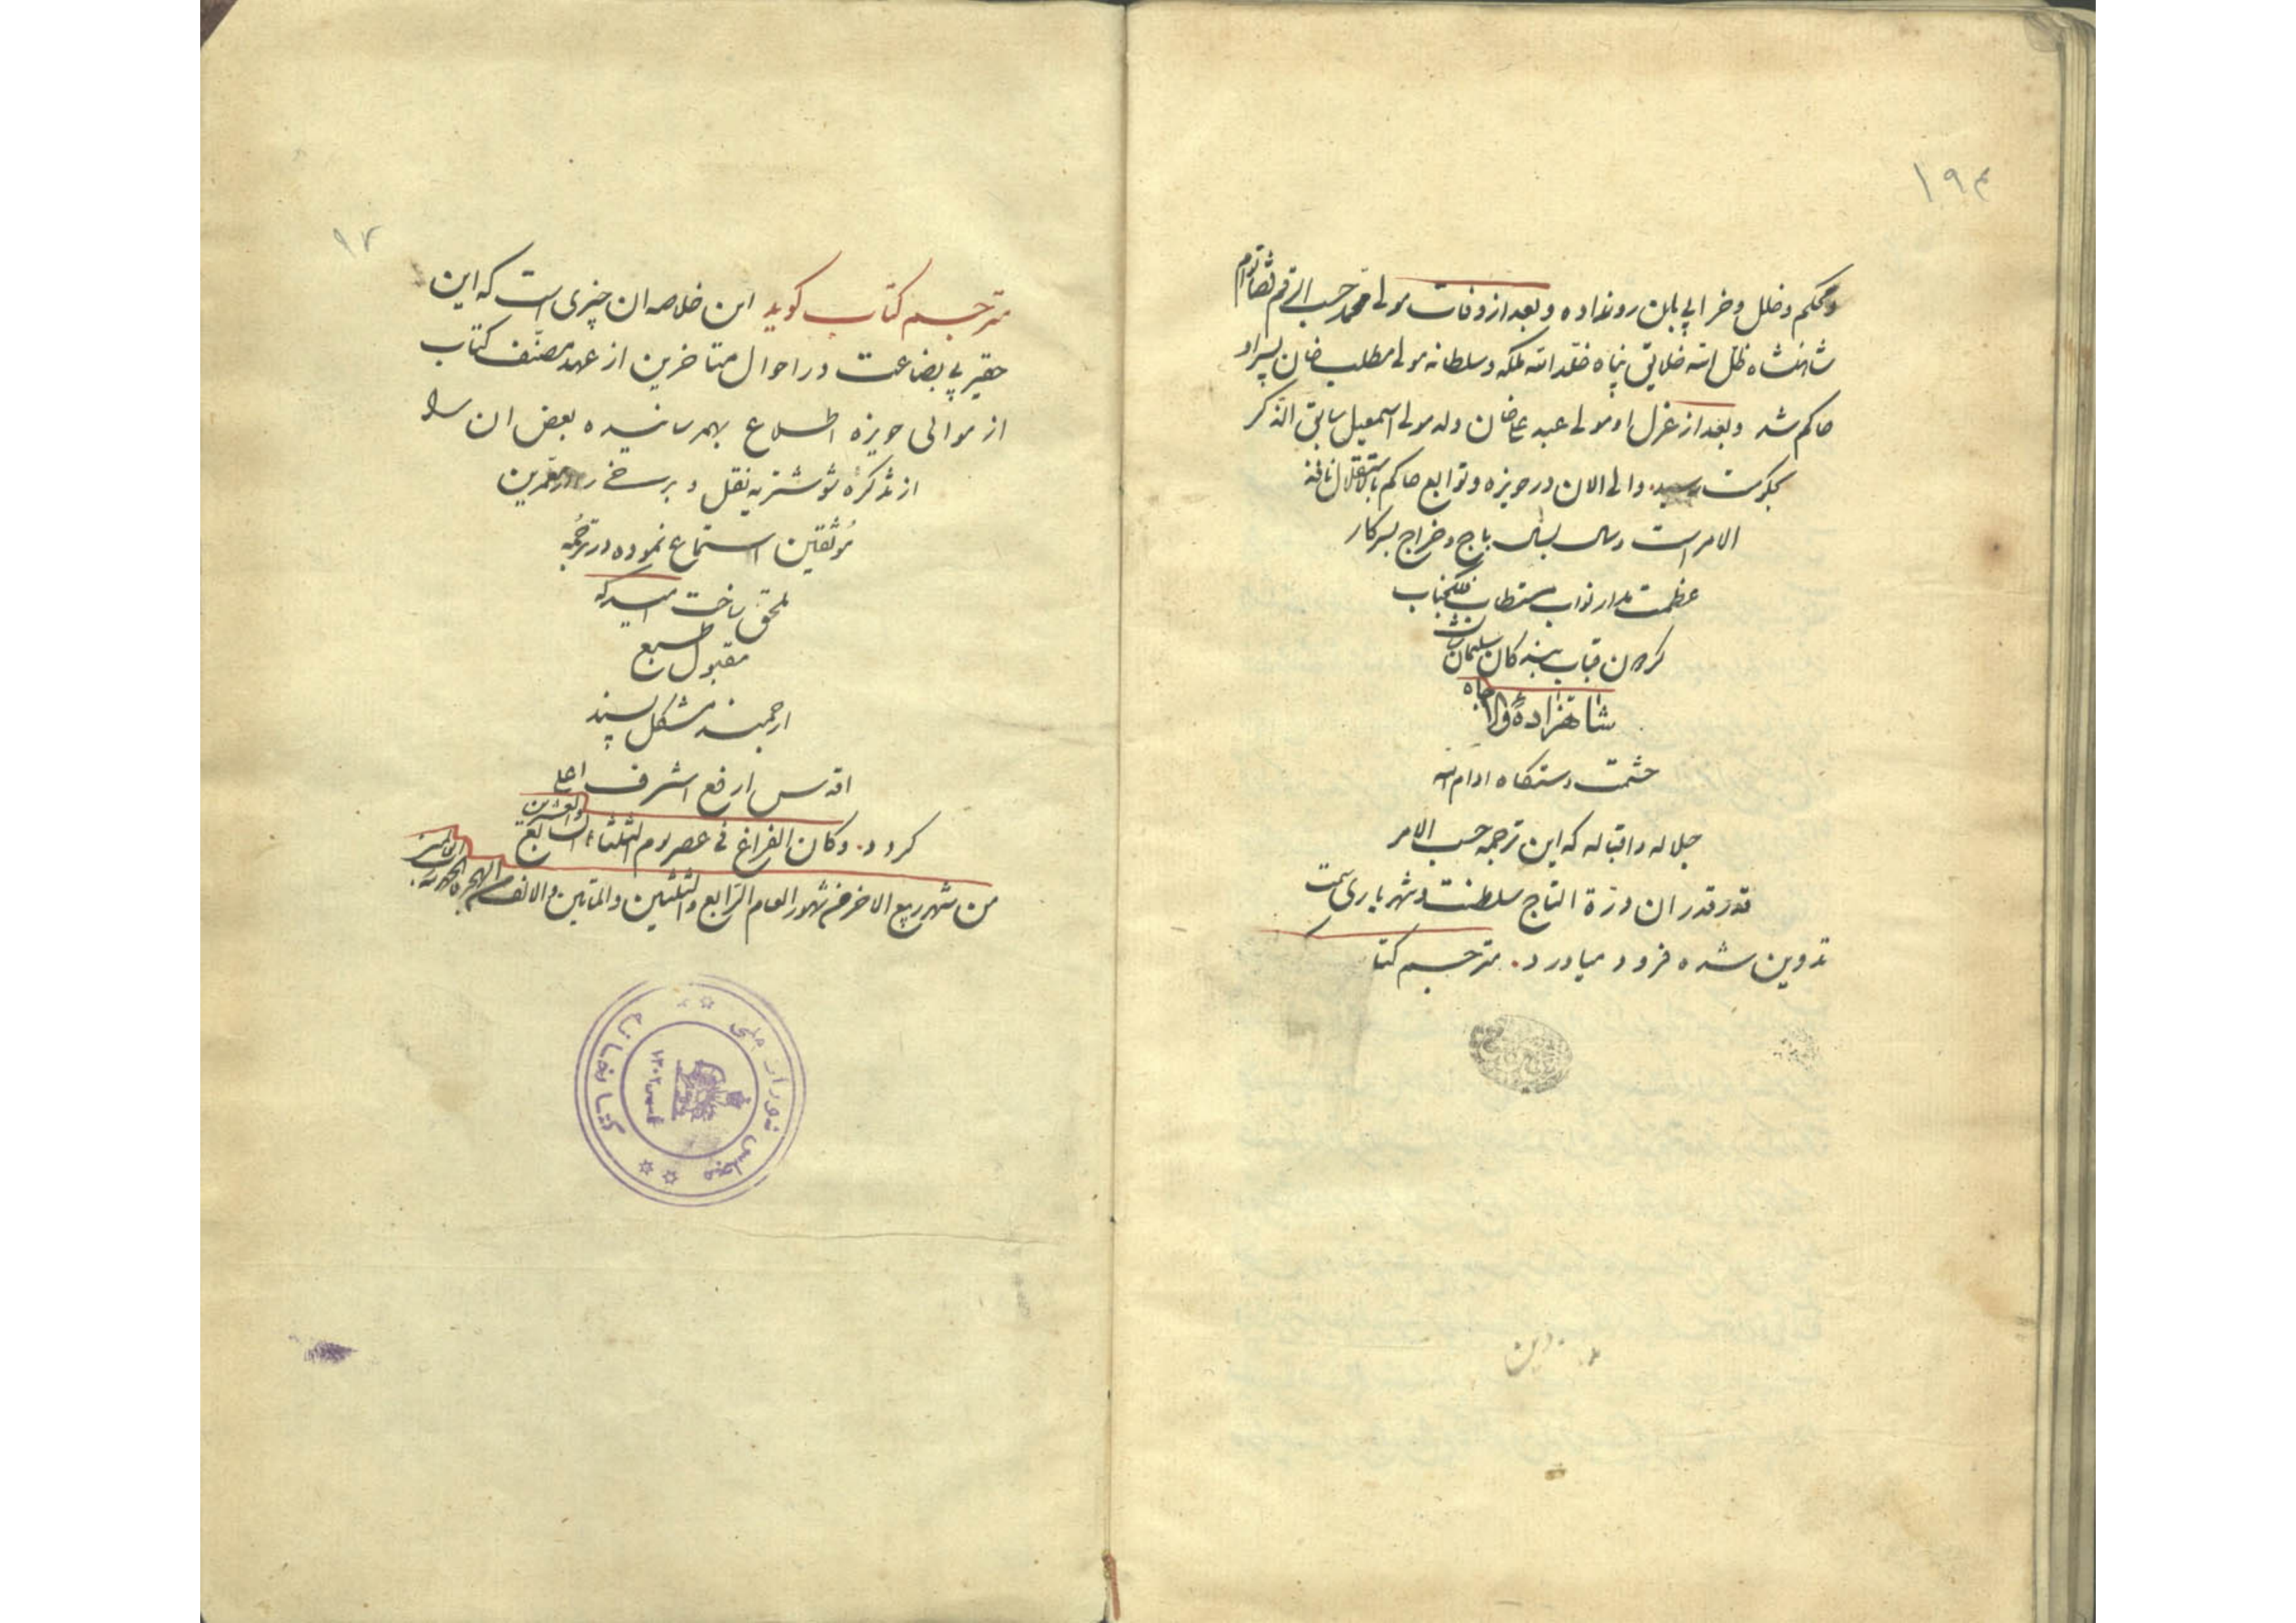 ۱۹۴
ومحکم و خلل و خرابی بان رو نداده و بعد از وفات مولی محمد حسب الرقم قضا توام
شاهنشاه ظل الله خلایق پناه خلد الله ملکه و سلطانه مولی مطلب خان پسر او
حاکم شد و بعد از عزل او مولی عبد علیخان ولد مولی اسمعیل سابق الذکر
بحکومت رسید والی الان در حویزه و توابع حاکم باستقلال نافذ
الامر است و سال بسال باج و خراج بسرکار
عظمت مدار نواب مستطاب فلکجناب
کردون قباب بندکان سلیمان شان
شاهزادهٔ والا جاه
حشمت دستکاه ادام الله
جلاله و اقباله که این ترجمه حسب الامر
قدر قدر ان درة التاج سلطنت و شهریاری سمت
تدوین شده فرود میاورد. مترجم کتا
۹۷
مترجم کتاب کوید این خلاصه ان چیزی است که این
حقیر بی بضاعت در احوال متاخرین از عهد مصنّف کتاب
از موالی حویزه اطلاع بهم رسانیده بعض ان را
از تذکرهٔ شوشتریه نقل و برخی را از معمرین
مُوثقین استماع نموده در ترجُمه
ملحق ساخت امید که
مقبول طبع
ارجمند مشکل پسند
اقدس ارفع اشرف اعلی
کردد. وکان الفراغ فی عصر یوم الثلثاء السابع والعشرین
من شهر ربیع الاخر من شهور العام الرّابع والثلثین والماتین والالف من الهجرة
کتابخانه مجلس شورای ملی
۱۳۰۲